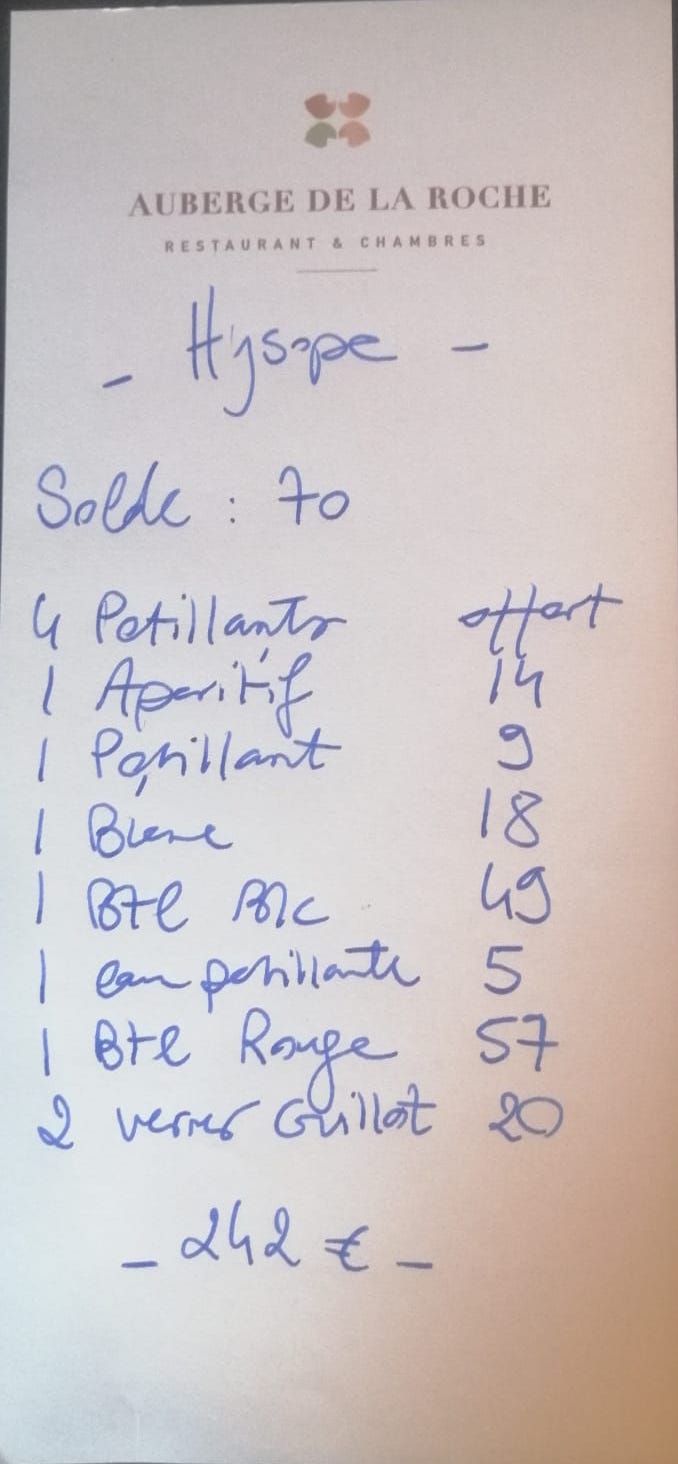 AUBERGE DE LA ROCHE
RESTAURANT & CHAMBRES
- Hysope -
Solde : 70
4 Petillants offert
1 Aperitif 14
1 Petillant 9
1 Biere 18
1 Btl Blc 49
1 eau petillante 5
1 Btl Rouge 57
2 verres Guillot 20
- 242 € -